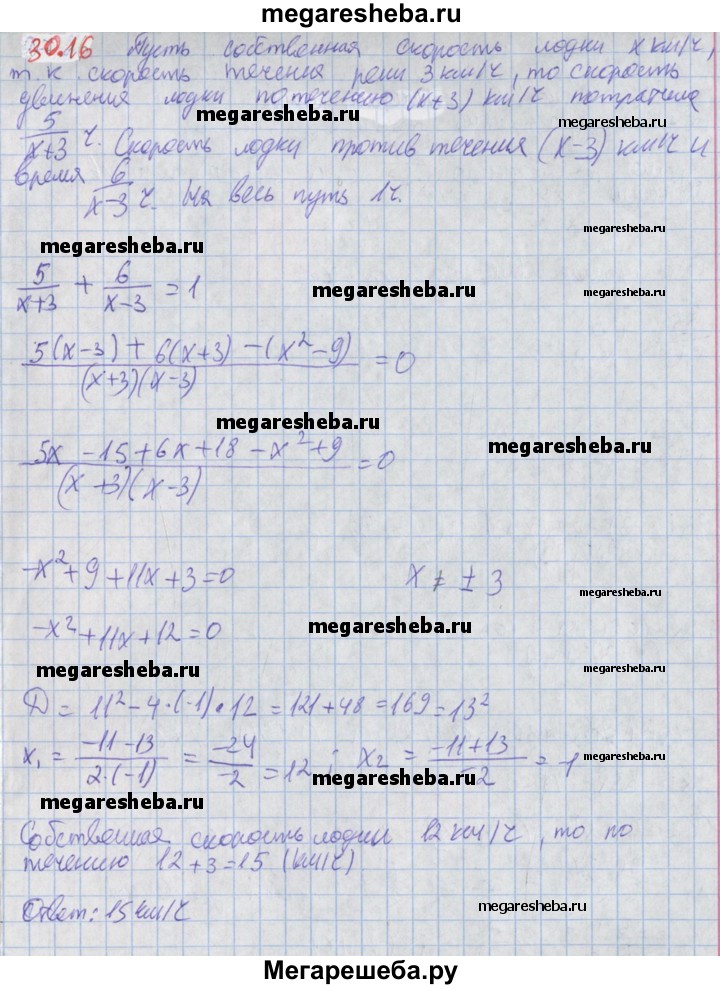 megaresheba.ru
30.16 Пусть собственная скорость лодки x км/ч,
т.к скорость течения реки 3 км/ч, то скорость
движения лодки по течению (x+3) км/ч потратила
megaresheba.ru
5/(x+3) ч. Скорость лодки против течения (x-3) км/ч и
время 6/(x-3) ч. На весь путь 1ч.
megaresheba.ru
megaresheba.ru
5/(x+3) + 6/(x-3) = 1
megaresheba.ru
(5(x-3) + 6(x+3) - (x²-9))/((x+3)(x-3)) = 0
megaresheba.ru
megaresheba.ru
(5x -15+6x+18-x²+9)/((x+3)(x-3)) = 0
-x²+9+11x+3=0 x ≠ ±3
-x²+11x+12=0
megaresheba.ru
megaresheba.ru
D = 11²-4·(-1)·12 = 121+48=169=13²
x₁ = (-11-13)/(2·(-1)) = -24/-2 = 12 ; x₂ = (-11+13)/-2 = -1
megaresheba.ru
megaresheba.ru
megaresheba.ru
Собственная скорость лодки 12 км/ч, то по
течению 12+3=15 (км/ч)
Ответ: 15 км/ч
megaresheba.ru
Мегарешеба.ру